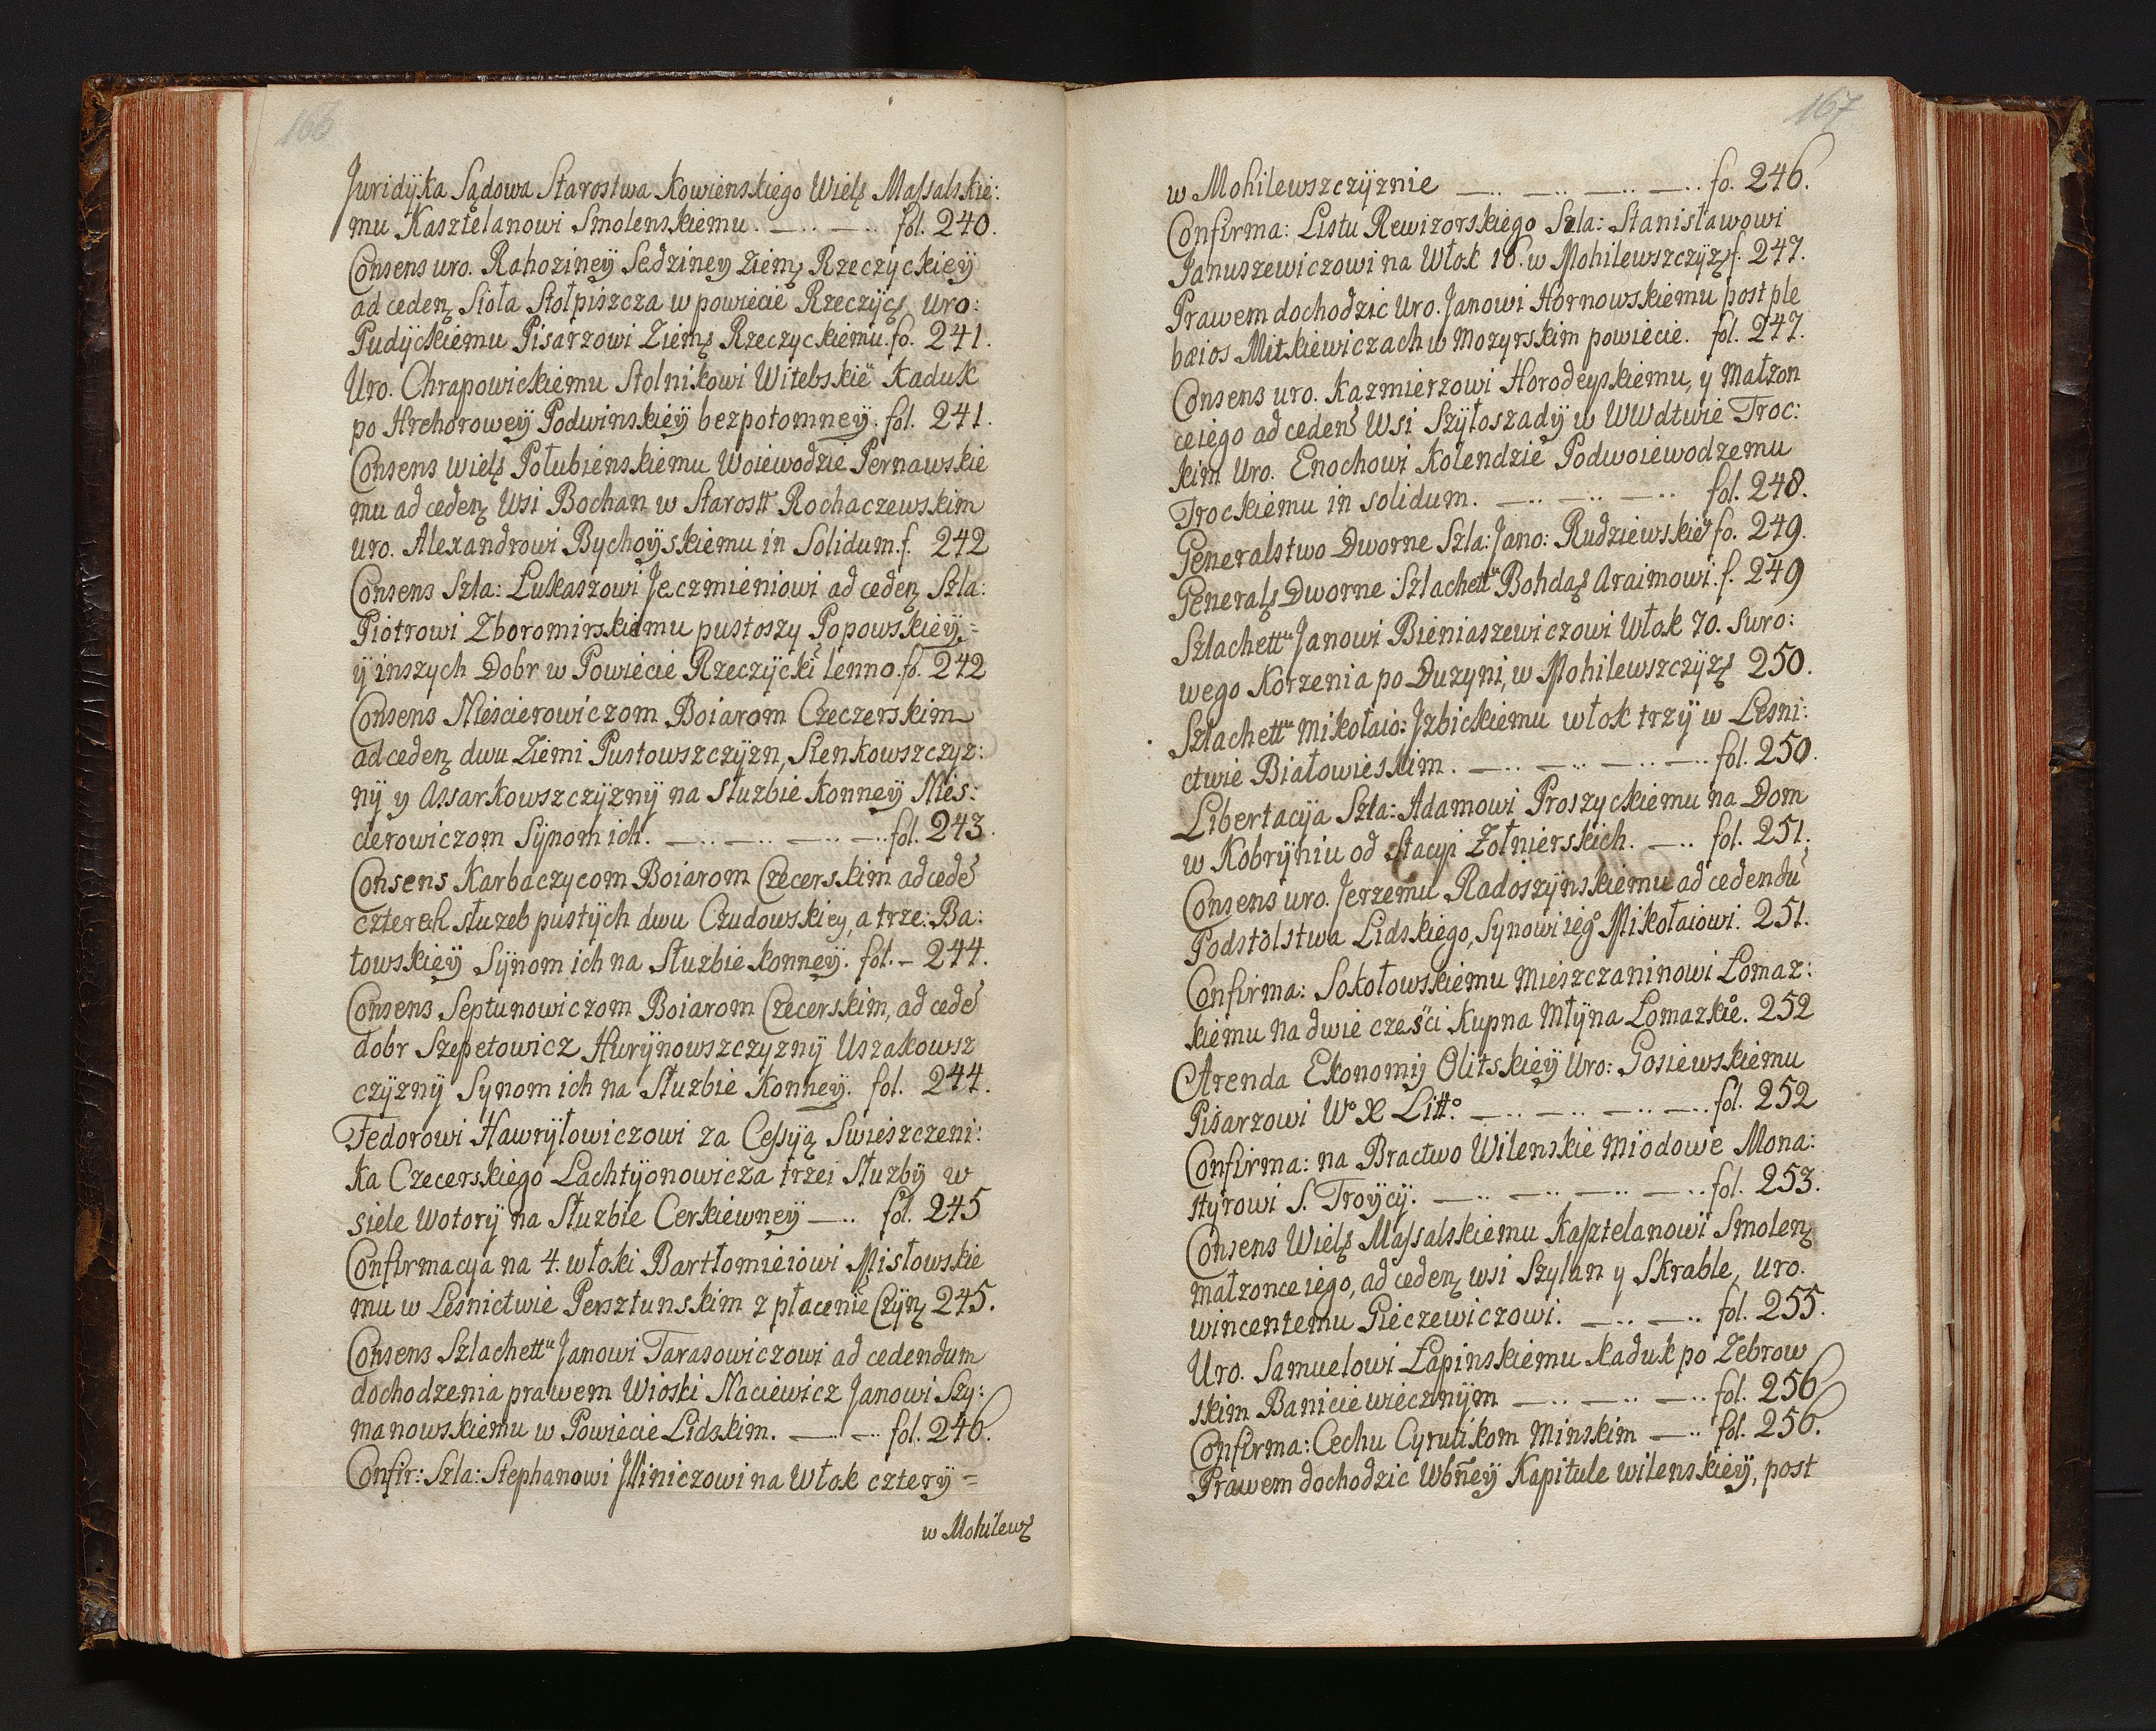 166
Juridyka Sądowa Starostwa Kowienskiego Wielz Massalskie:
mu Kasztelanowi Smolenskiemu. fol. 240.
Consens uro. Rahoziney Sedziney Ziemz Rzeczyckiey
ad cedenz Sioła Stołpiszcza w powiecie Rzeczycz Uro:
Pudyckiemu Pisarzowi Ziemz Rzeczyckiemu. fo. 241.
Uro. Chrapowickiemu Stolnikowi Witebskie Kaduk
po Hrehorowey Podwinskiey bezpotomney. fol. 241.
Consens wielz Połubienskiemu Woiewodzie Pernawskie
mu ad cedenz Wsi Bochan w Starostt Rochaczewskim
uro. Alexandrowi Bychoyskiemu in Solidum. f. 242
Consens Szla: Lukaszowi Jeczmieniowi ad cedenz Szla:
Piotrowi Zboromirskiemu pustoszy Popowskiey =
y inszych Dobr w Powiecie Rzeczycki lenno. fo. 242
Consens Nieścierowiczom Boiarom Czeczerskim
ad cedenz dwu Ziemi Pustowszczyzn, Sienkowszczyz:
ny y Assarkowszczyzny na służbie konney Nies:
cierowiczom Synom ich. fol. 243.
Consens Karbaczycom Boiarom Czecerskim ad cede
czterech służeb pustych dwu Czudowskiey, a trze: Ba:
towskiey Synom ich na Służbie konney. fol. 244.
Consens Septunowiczom Boiarom Czecerskim, ad cede
dobr Szepetowicz Hurynowszczyzny Uszakowsz
czyzny Synom ich na Służbie Konney. fol. 244.
Fedorowi Hawryłowiczowi za Cessyą Swieszczeni:
ka Czecerskiego Lachtyonowicza trzei Służby w
siele Wotory na Służbie Cerkiewney fol. 245
Confirmacya na 4. włoki Bartłomieiowi Misłowskie
mu w Lesnictwie Persztunskim z płacenie Czynz 245.
Consens Szlachettu Janowi Tarasowiczowi ad cedendum
dochodzenia prawem Wioski Naciewicz Janowi Szy:
manowskiemu w Powiecie Lidskim. fol. 246.
Confir: Szla: Stephanowi Jliniczowi na Włok cztery =
w Mohilewz
167
w Mohilewszczyznie fo. 246.
Confirma: Listu Rewizorskiego Szla: Stanisławowi
Januszewiczowi na Włok 16. w Mohilewszczyzz f. 247.
Prawem dochodzic Uro. Janowi Hornowskiemu post ple
bæios Mitkiewiczach w Mozyrskim powiecie. fol. 247.
Consens uro. Kazmierzowi Horodeyskiemu, y Małzon
ce iego ad ceden Wsi Szyłoszady w WWdtwie Troc:
kim Uro. Enochowi Kolendzie Podwoiewodzemu
Trockiemu in solidum. fol. 248.
Generalstwo Dworne Szla: Jano: Rudziewskie fo. 249.
Generalz Dworne Szlachettu Bohdaz Araimowi. f. 249
Szlachettu Janowi Bieniaszewiczowi Włok 70. Suro:
wego Korzenia po Duzyni, w Mohilewszczyzz 250.
Szlachettu Mikołaio: Jzbickiemu włok trzy w Lesni:
ctwie Białowieskim. fol. 250.
Libertacya Szla: Adamowi Proszyckiemu na Dom
w Kobryniu od Stacyi Żołnierskich. fol. 251.
Consens uro. Jerzemu Radoszynskiemu ad cedendu
Podstolstwa Lidskiego, Synowi ieg° Mikołaiowi. 251.
Confirma: Sokołowskiemu Mieszczaninowi Łomaz:
kiemu na dwie części Kupna Młyna Łomazkie°. 252
Arenda Ekonomij Olitskiey Uro: Gosiewskiemu
Pisarzowi W° X Litt° fol. 252
Confirma: na Bractwo Wilenskie Miodowe Mona:
styrowi S. Troycy. fol. 253.
Consens Wielz Massalskiemu Kasztelanowi Smolenz
małzonce iego, ad cedenz wsi Szylan y Skrable, uro.
wincentemu Gieczewiczowi. fol. 255.
Uro. Samuelowi Łapinskiemu Kaduk po Zebrow
skim Banicie wiecznym fol. 256
Confirma: Cechu Cyrulikom Minskim fol. 256.
Prawem dochodzic Wbney Kapitule wilenskiey, post